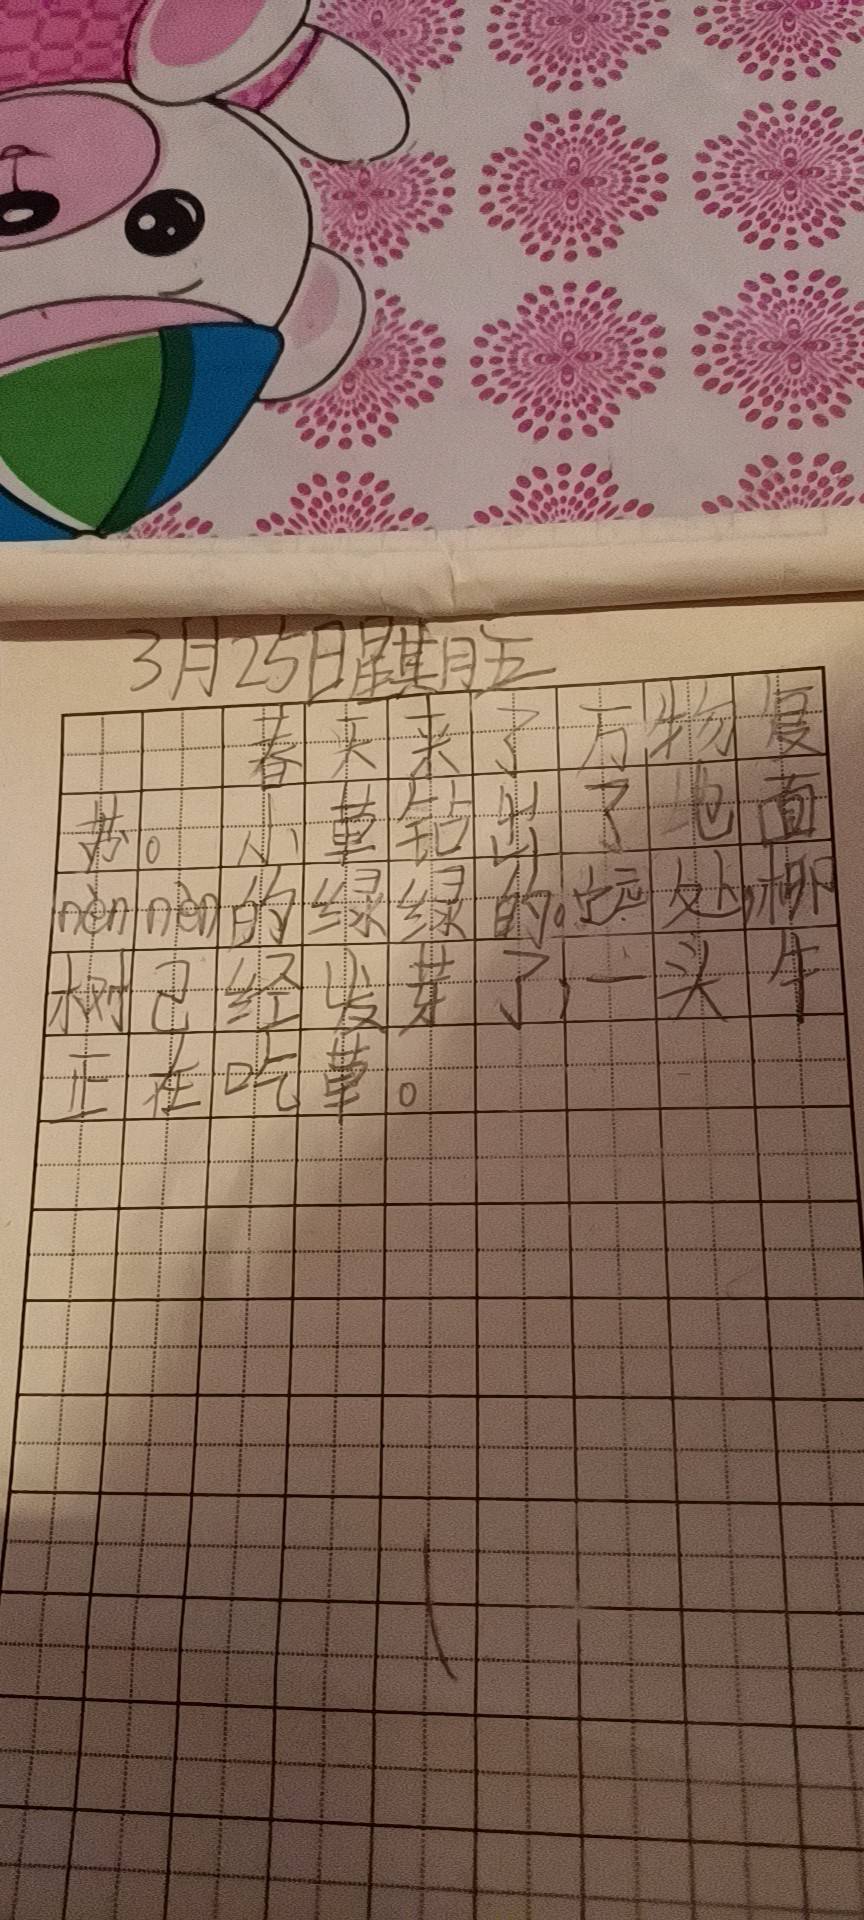 3月25日星期五
春天来了万物复
苏。小草钻出了地面
nèn nèn的绿绿的。远处,柳
树已经发芽了,一头牛
正在吃草。